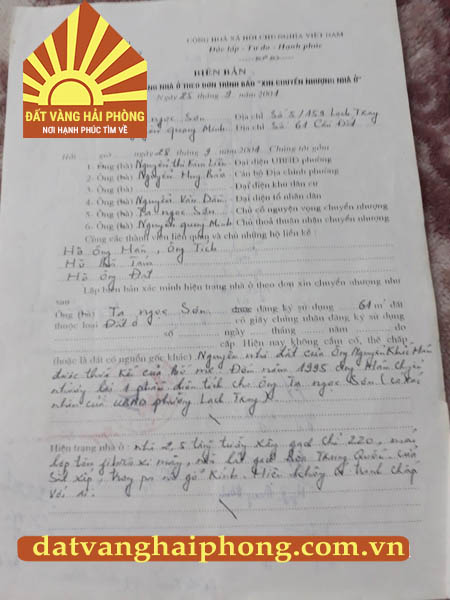 ĐẤT VÀNG HẢI PHÒNG
NƠI HẠNH PHÚC TÌM VỀ
CỘNG HOÀ XÃ HỘI CHỦ NGHĨA VIỆT NAM
Độc lập - Tự do - Hạnh phúc
BIÊN BẢN
NG NHÀ Ở THEO ĐƠN TRÌNH BÁO "XIN CHUYỂN NHƯỢNG NHÀ Ở"
Ngày 25 tháng 9 năm 2001
ngọc Sơn Địa chỉ Số 5/159 Lạch Tray
Nguyễn quang Minh Địa chỉ Số 61 Cầu Đất
Hồi giờ ngày 28 tháng 9 năm 2001 Chúng tôi gồm
1. Ông (bà) Nguyễn thị Kim Liên - Đại diện UBND phường
2. Ông (bà) Nguyễn Huy Bảo - Cán bộ Địa chính phường
3. Ông (bà) - Đại diện khu dân cư
4. Ông (bà) Nguyễn Văn Dân - Đại diện tổ nhân dân
5. Ông (bà) Tạ ngọc Sơn - Chủ cố nguyện vọng chuyển nhượng
6. Ông (bà) Nguyễn quang Minh - Chủ thoả thuận nhận chuyển nhượng
Cùng các thành viên liên quan và chủ những hộ liền kề :
Hộ Ông Hán, Ông Tích
Hộ Bà Tám
Hộ Ông Đạt
Lập biên bản xác minh hiện trạng nhà ở theo đơn xin chuyển nhượng như
sau
Ông (bà) Tạ ngọc Sơn được đăng ký sử dụng 61 m² đất
thuộc loại Đất ở có giấy chứng nhận đăng ký sử dụng
số ngày tháng năm do
cấp Hiện nay không cầm cố, thế chấp
(hoặc là đất có nguồn gốc khác) Nguyên nhà đất của Ông Nguyễn Khắc Hán
được thừa kế của bố mẹ. Đến năm 1995 ông Hán chuyển
nhượng lại 1 phần diện tích cho Ông Tạ ngọc Sơn (có xác
nhận của UBND phường Lạch Tray)
Hiện trạng nhà ở : nhà 2,5 tầng tường xây gạch chỉ 220, mái
lợp tấm fibrô xi măng, nền lát gạch hoa Trung Quốc. Cửa
sắt xếp, pa nô gỗ kính. Hiện không có tranh chấp
với ai.
datvanghaiphong.com.vn